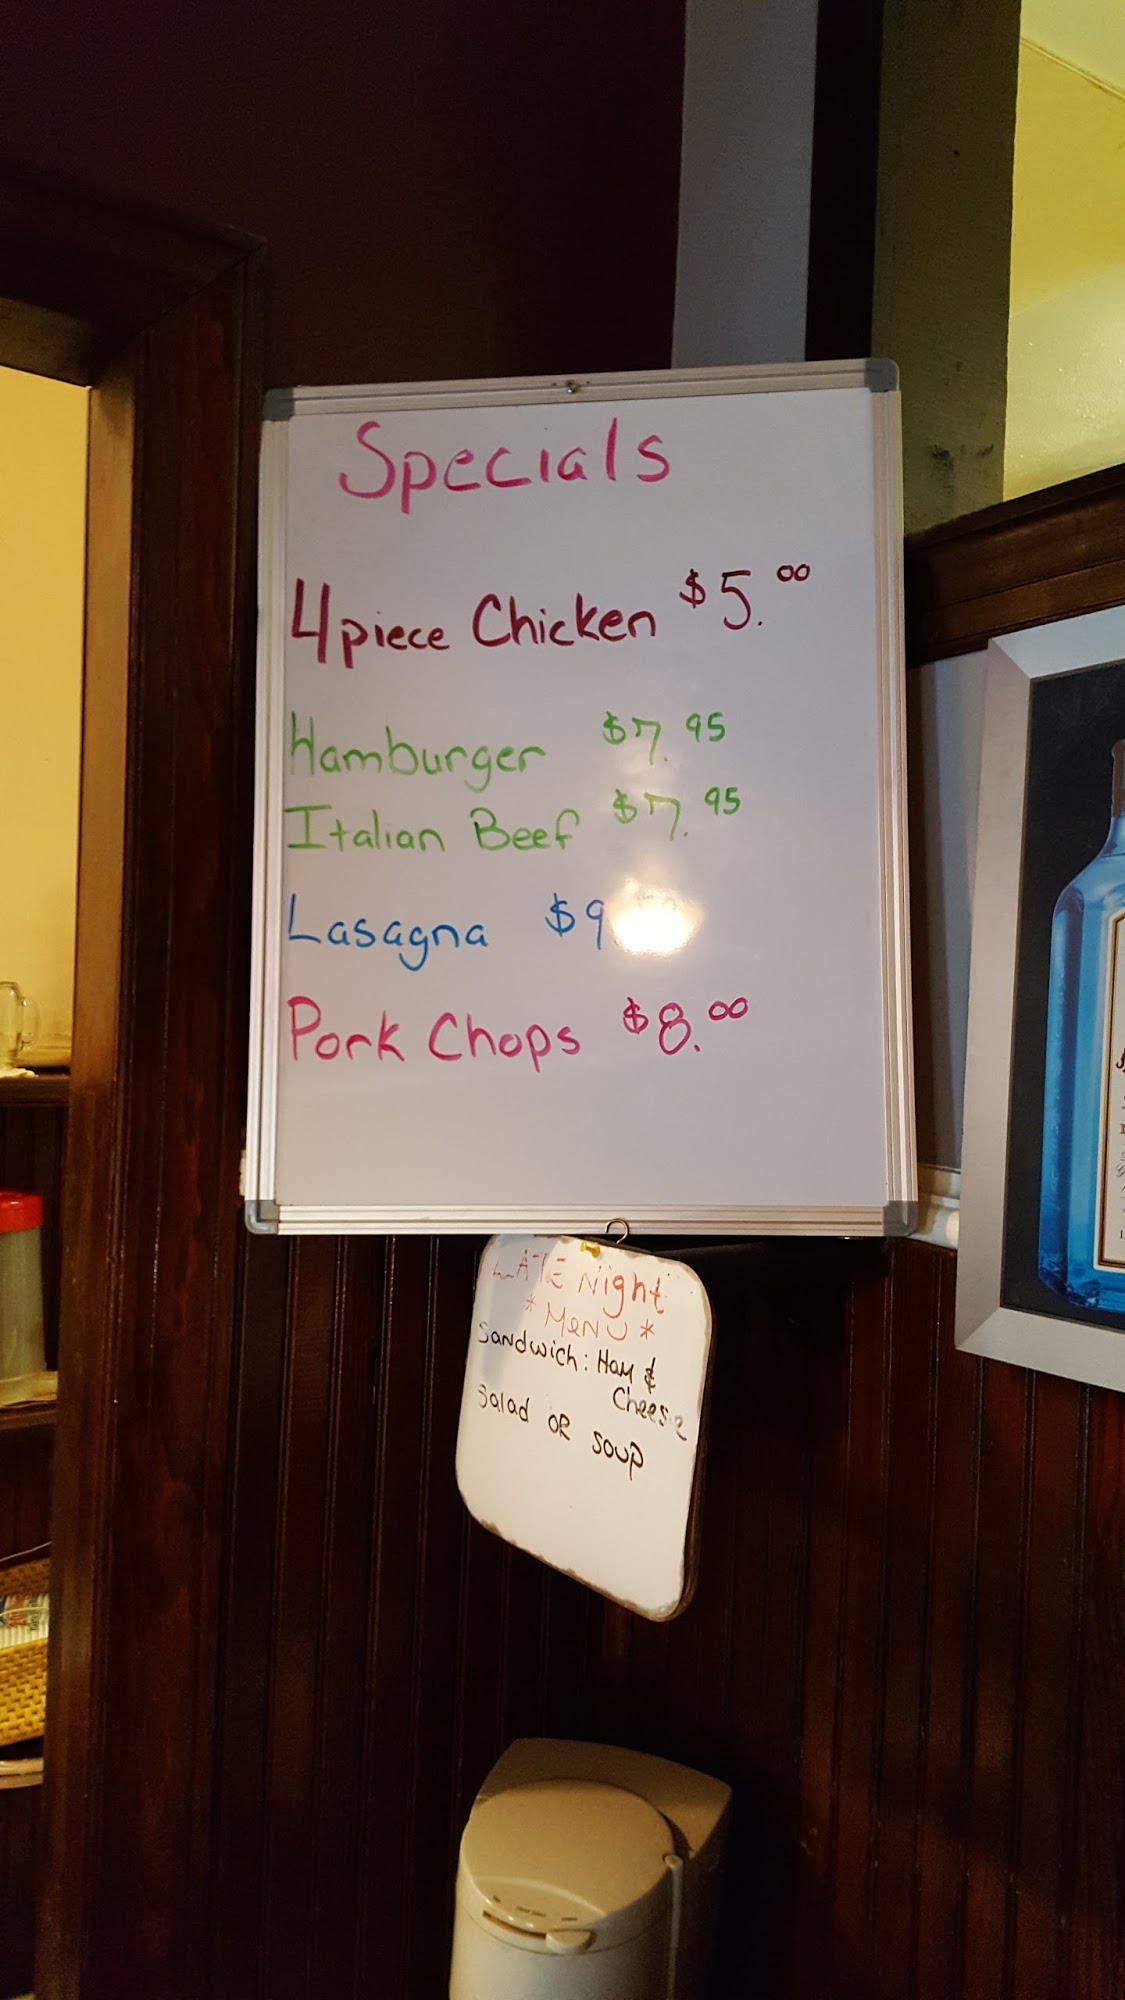 Specials
4 piece Chicken $5.00
Hamburger $7.95
Italian Beef $7.95
Lasagna $9.
Pork Chops $8.00
LATE Night
* MeNU *
Sandwich: Ham &
Cheese
Salad OR Soup